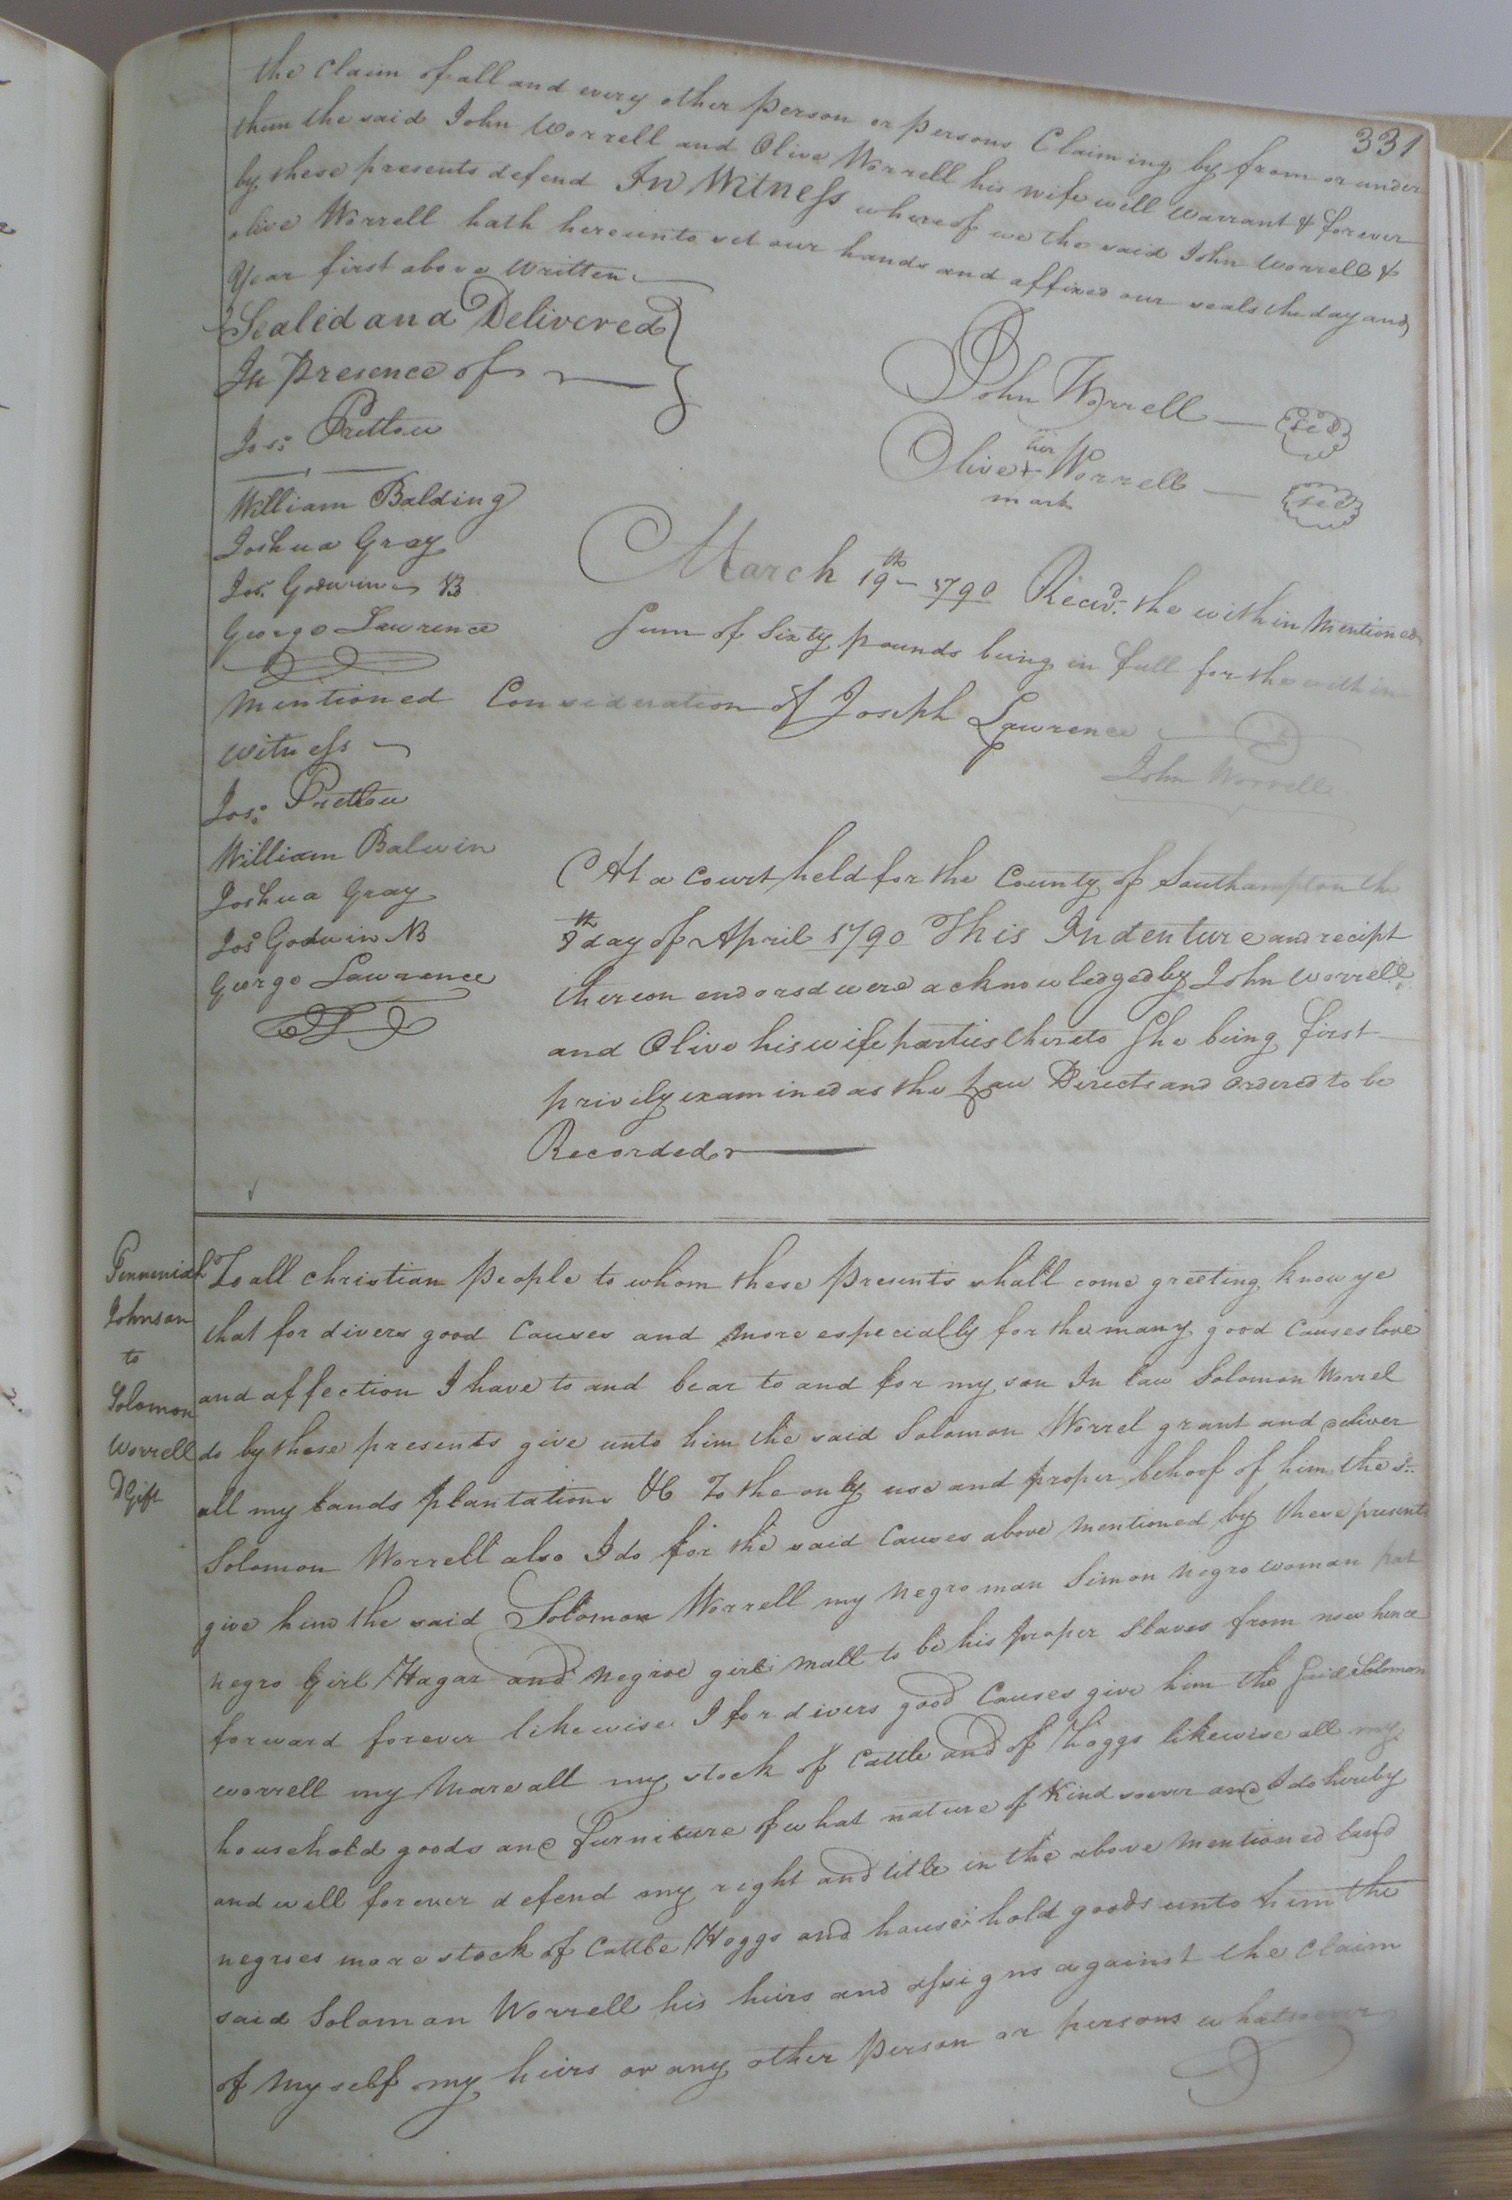 331
the Claim of all and every other Person or persons Claiming by from or under
them the said John Worrell and Olive Worrell his wife will warrant & forever
by these presents defend In Witness whereof we the said John Worrell &
olive Worrell hath hereunto set our hands and affixed our seals the day and
Year first above written
Sealed and Delivered
In presence of
John Worrell
Olive her + mark Worrell
Jos: Pretlow
William Balding
Joshua Gray
Jos. Godwin
George Lawrence
March 19th 1790 Recd. the within mentioned
Sum of Sixty pounds being in full for the within
mentioned Consideration of Joseph Lawrence
John Worrell
witness
Jos: Pretlow
William Balwin
Joshua Gray
Jos Godwin NB
George Lawrence
At a Court held for the County of Southampton the
8th day of April 1790 This Indenture and recipt
thereon endorsd were acknowledged by John Worrell
and Olive his wife parties thereto She being first
privily examined as the Law Directs and ordered to be
Recorded
Johnson
to
Solomon
Worrell
DGift
To all christian People to whom these Presents shall come greeting know ye
that for divers good Causes and more especially for the many good Causes love
and affection I have to and bear to and for my son In law Solomon Worrel
do by these presents give unto him the said Solomon Worrel grant and deliver
all my Lands plantations &c To the only use and proper behoof of him the sd.
Solomon Worrell also I do for the said Causes above mentioned by these presents
give him the said Solomon Worrell my negro man Simon negro woman pat
negro Girl Hagar and negroe girl mall to be his proper Slaves from now hence
forward forever likewise I for divers good Causes give him the Said Solomon
worrell my Mare all my stock of Cattle and of hoggs likewise all my
household goods and furniture of what nature of Kind soever and I do hereby
and will forever defend my right and title in the above mentioned land
negroes mare stock of Cattle Hoggs and household goods unto him the
said Soloman Worrell his heirs and assigns against the Claim
of my self my heirs or any other Person or persons whatsoever